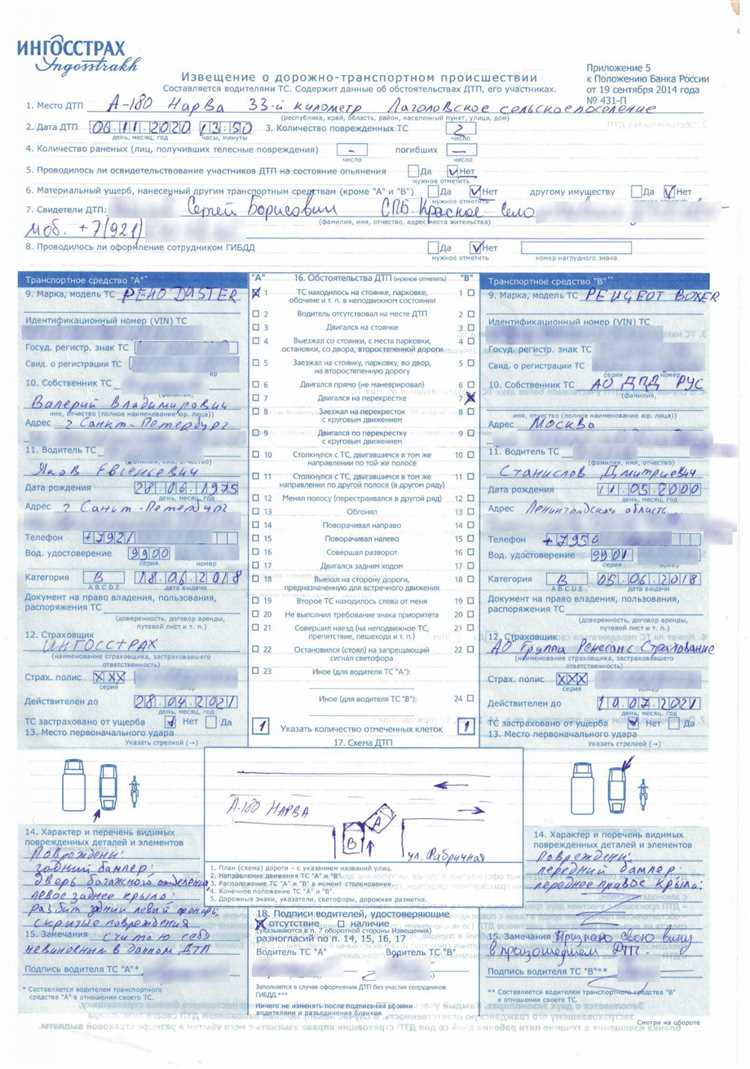 ИНГОССТРАХ
Ingosstrakh
Приложение 5
к Положению Банка России
от 19 сентября 2014 года
№ 431-П
Извещение о дорожно-транспортном происшествии
Составляется водителями ТС. Содержит данные об обстоятельствах ДТП, его участниках.
1. Место ДТП А-180 Нарва 33-й километр Лаголовское сельское поселение
(республика, край, область, район, населенный пункт, улица, дом)
2. Дата ДТП 06.11.2020 13:50 3. Количество поврежденных ТС 2
день, месяц, год часы, минуты число
4. Количество раненых (лиц, получивших телесные повреждения) - погибших -
число число
5. Проводилось ли освидетельствование участников ДТП на состояние опьянения Да Нет
нужное отметить
6. Материальный ущерб, нанесенный другим транспортным средствам (кроме "А" и "В") Да Нет другому имуществу Да Нет
нужное отметить нужное отметить
7. Свидетели ДТП: Сергей Борисович СПБ Красное Село
(фамилия, имя, отчество, адрес места жительства)
моб. +7(921)
8. Проводилось ли оформление сотрудником ГИБДД Да Нет
нужное отметить номер нагрудного знака
Транспортное средство "А"
9. Марка, модель ТС РЕНО DASTER
Идентификационный номер (VIN) ТС
Госуд. регистр. знак ТС
Свид. о регистрации ТС
10. Собственник ТС
Валерий Владимирович
имя, отчество (полное наименование юр. лица))
Адрес г Санкт-Петербург
11. Водитель ТС
Яков Евгеньевич
Дата рождения 28.06.1975
день, месяц, год
Адрес г Санкт-Петербург
Телефон +7921
Вод. удостоверение 9900
серия номер
Категория B 18.06.2018
A B C D E дата выдачи
Документ на право владения, пользования,
распоряжения ТС
(доверенность, договор аренды,
путевой лист и т. п.)
12. Страховщик
ИНГОССТРАХ
(наименование страховщика, застраховавшего
ответственность)
Страх. полис XXX
серия
Действителен до 28.04.2021
день, месяц, год
ТС застраховано от ущерба Нет Да
13. Место первоначального удара
Указать стрелкой (→)
"А" 16. Обстоятельства ДТП (нужное отметить) "В"
1 ТС находилось на стоянке, парковке, 1
обочине и т. п. в неподвижном состоянии
2 Водитель отсутствовал на месте ДТП 2
3 Двигался на стоянке 3
4 Выезжал со стоянки, с места парковки, 4
остановки, со двора, второстепенной дороги
5 Заезжал на стоянку, парковку, во двор, 5
на второстепенную дорогу
6 Двигался прямо (не маневрировал) 6
7 Двигался на перекрестке 7
8 Заезжал на перекресток 8
с круговым движением
9 Двигался по перекрестку 9
с круговым движением
10 Столкнулся с ТС, двигавшимся в том же 10
направлении по той же полосе
11 Столкнулся с ТС, двигавшимся в том же 11
направлении по другой полосе (в другом ряду)
12 Менял полосу (перестраивался в другой ряд) 12
13 Обгонял 13
14 Поворачивал направо 14
15 Поворачивал налево 15
16 Совершал разворот 16
17 Двигался задним ходом 17
18 Выехал на сторону дороги, 18
предназначенную для встречного движения
19 Второе ТС находилось слева от меня 19
20 Не выполнил требование знака приоритета 20
21 Совершил наезд (на неподвижное ТС, 21
препятствие, пешехода и т. п.)
22 Остановился (стоял) на запрещающий 22
сигнал светофора
23 Иное (для водителя ТС "А"):
Иное (для водителя ТС "В"): 24
1 Указать количество отмеченных клеток 1
17. Схема ДТП
Транспортное средство "В"
9. Марка, модель ТС PEUGEOT BOXER
Идентификационный номер (VIN) ТС
Госуд. регистр. знак ТС
Свид. о регистрации ТС
серия номер
10. Собственник ТС АО ДПД РУС
(фамилия,
имя, отчество (полное наименование юр. лица))
Адрес Москва
11. Водитель ТС
(фамилия, имя, отчество)
Станислов Дмитриевич
Дата рождения 11.05.2000
день, месяц, год
Адрес Ленинградская область
Телефон +7950
Вод. удостоверение 9901
серия номер
Категория B 05.06.2018
A B C D E дата выдачи
Документ на право владения, пользования,
распоряжения ТС
(доверенность, договор аренды,
путевой лист и т. п.)
12. Страховщик
АО Группа Ренесанс Страхование
(наименование страховщика, застраховавшего
ответственность)
Страх. полис XXX
серия номер
Действителен до 10.07.2021
день, месяц, год
ТС застраховано от ущерба Нет Да
13. Место первоначального удара
Указать стрелкой (→)
А-180 НАРВА
А
В
ул. Фабричная
1. План (схема) дороги – с указанием названий улиц.
2. Направление движения ТС "А" и "В".
3. Расположение ТС "А" и "В" в момент столкновения.
4. Конечное положение ТС "А" и "В".
5. Дорожные знаки, указатели, светофоры, дорожная разметка.
14. Характер и перечень видимых
поврежденных деталей и элементов
Поврежден:
задний бампер,
дверь багажного отделения,
левое заднее крыло,
разбит задний левый фонарь
скрытые повреждения
15. Замечания считаю себя
невиновным в данном ДТП
Подпись водителя ТС "А"*
* Составляется водителем транспортного
средства "А" в отношении своего ТС.
18. Подписи водителей, удостоверяющие
отсутствие наличие
(указываются в п. 7 оборотной стороны Извещения)
разногласий по п. 14, 15, 16, 17
Водитель ТС "А" Водитель ТС "В"
Заполняется в случае оформления ДТП без участия сотрудников
ГИБДД.***
Ничего не изменять после подписания обоими
водителями и разъединения бланков.
14. Характер и перечень видимых
поврежденных деталей и элементов
Поврежден:
передний бампер
переднее правое крыло:
15. Замечания Признаю свою вину
в произошедшем ДТП.
Подпись водителя ТС "В"**
** Составляется водителем транспортного средства "В"
в отношении своего ТС.
Смотри на обороте